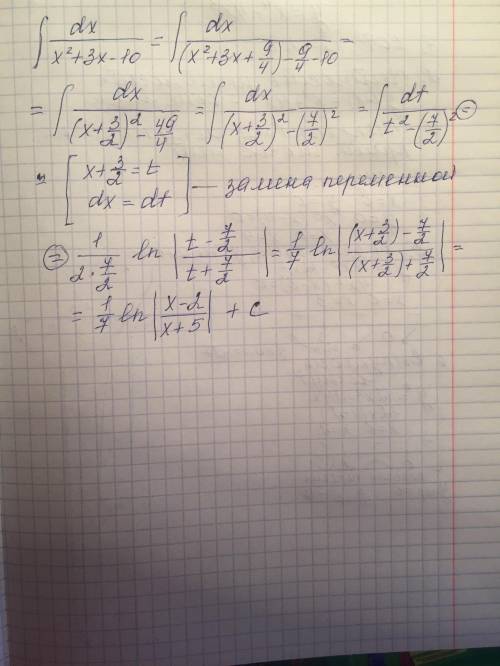 ∫ dx/(x²+3x-10) = ∫ dx/((x²+3x+9/4)-9/4-10) =
= ∫ dx/((x+3/2)²-49/4) = ∫ dx/((x+3/2)²-(7/2)²) = ∫ dt/(t²-(7/2)²) =
= [x+3/2=t
dx=dt] — замена переменной
= 1/(2·7/2) ln |(t-7/2)/(t+7/2)| = 1/7 ln |((x+3/2)-7/2)/((x+3/2)+7/2)| =
= 1/7 ln |(x-2)/(x+5)| + C